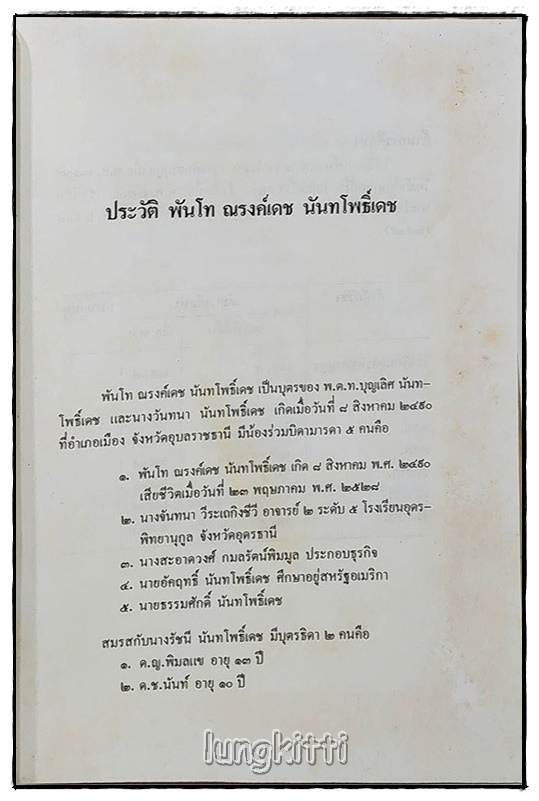 ประวัติ พันโท ณรงค์เดช นันทโพธิ์เดช
พันโท ณรงค์เดช นันทโพธิ์เดช เป็นบุตรของ พ.ต.ท.บุญเลิศ นันท-
โพธิ์เดช และนางวันทนา นันทโพธิ์เดช เกิดเมื่อวันที่ ๘ สิงหาคม ๒๔๙๐
ที่อำเภอเมือง จังหวัดอุบลราชธานี มีน้องร่วมบิดามารดา ๕ คนคือ
๑. พันโท ณรงค์เดช นันทโพธิ์เดช เกิด ๘ สิงหาคม พ.ศ. ๒๔๙๐
เสียชีวิตเมื่อวันที่ ๒๓ พฤษภาคม พ.ศ. ๒๕๒๘
๒. นางจันทนา วีระเถกิงชีวี อาจารย์ ๒ ระดับ ๕ โรงเรียนอุดร-
พิทยานุกูล จังหวัดอุดรธานี
๓. นางสะอาดวงศ์ กมลรัตน์พิมมูล ประกอบธุรกิจ
๔. นายอัคฤทธิ์ นันทโพธิ์เดช ศึกษาอยู่สหรัฐอเมริกา
๕. นายธรรมศักดิ์ นันทโพธิ์เดช
สมรสกับนางรัชนี นันทโพธิ์เดช มีบุตรธิดา ๒ คนคือ
๑. ด.ญ.พิมลแข อายุ ๑๓ ปี
๒. ด.ช.นันท์ อายุ ๑๐ ปี
lungkitti